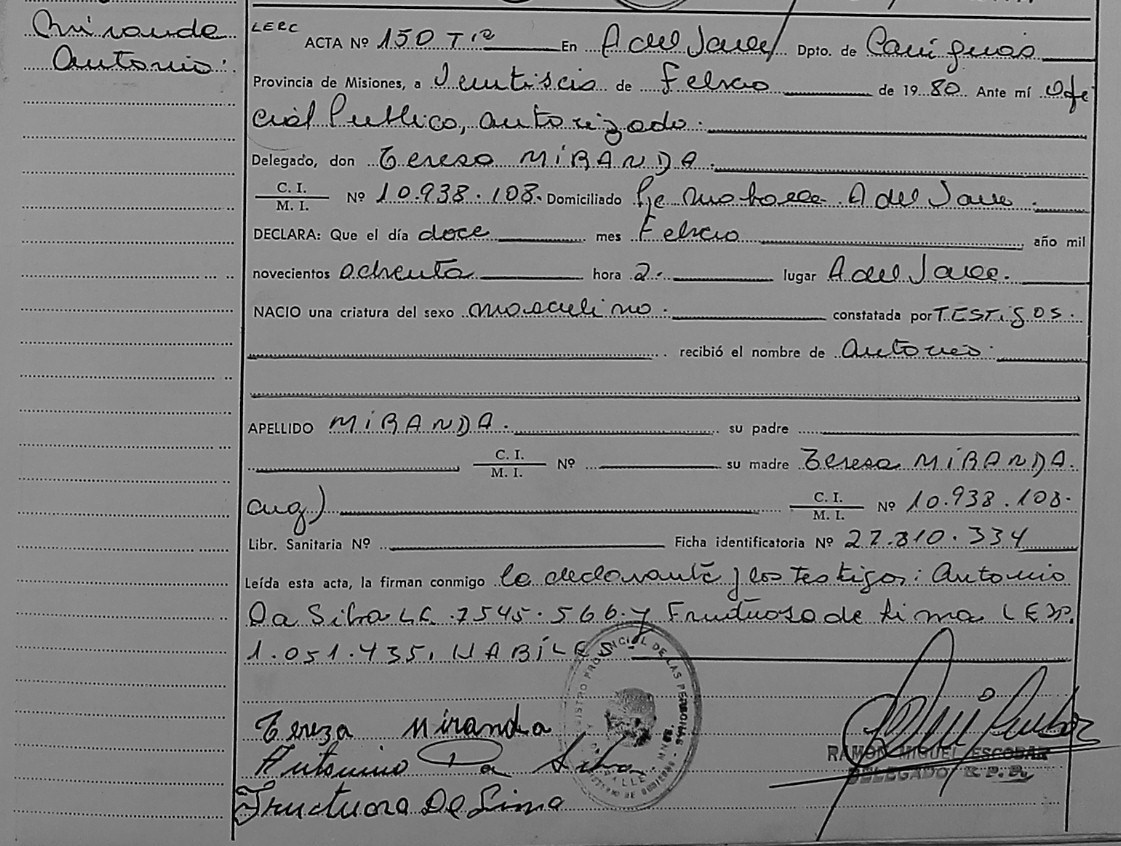 Miranda
Antonio.
LERC
ACTA Nº 150 Tº I En A del Valle Dpto. de Cainguas
Provincia de Misiones, a Veintiseis de Febrero de 1980. Ante mí Ofi
cial Publico, autorizado.
Delegado, don Teresa MIRANDA.
C. I. / M. I. Nº 10.938.108. Domiciliado A del
DECLARA: Que el día doce mes Febrero año mil
novecientos ochenta hora 2. lugar A del Valle.
NACIO una criatura del sexo masculino. constatada por TESTIGOS.
recibió el nombre de Antonio.
APELLIDO MIRANDA. su padre
C. I. / M. I. Nº su madre Teresa MIRANDA.
arg)
C. I. / M. I. Nº 10.938.108.
Libr. Sanitaria Nº Ficha identificatoria Nº 27.810.334
Leída esta acta, la firman conmigo la declarante y los testigos: Antonio
Da Silva LE. 7545.566 y Fructuoso de Lima LE
1.051.435, HABILES.
REGISTRO PROVINCIAL DE LAS PERSONAS
Tereza Miranda
Antonio Da Silva
Fructuoza De Lima
RAMON MIGUEL ESCOBAR
DELEGADO R.P.P.